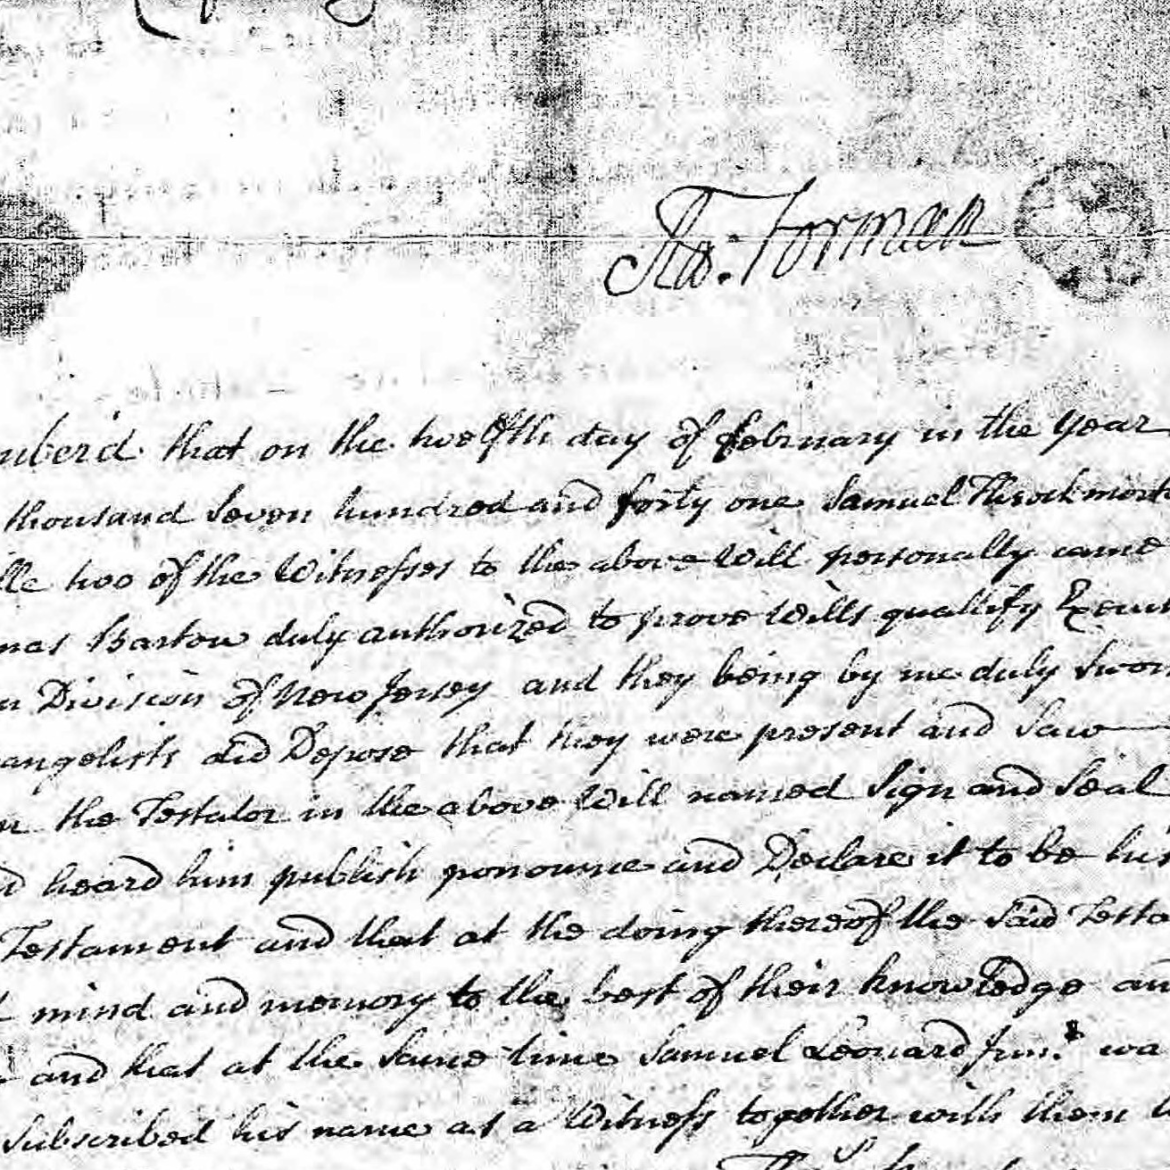 Tho: Forman
mberd that on the twelfth day of february in the year
thousand Seven hundred and forty one Samuel Throckmort
lle two of the Witnesses to the above Will personally came
mas Bartow duly authorized to prove Wills qualify Execut
n Division of New Jersey and they being by me duly Sworn
angelists did Depose that they were present and Saw
n the Testator in the above Will named Sign and Seal
d heard him publish pronounce and Declare it to be his
Testament and that at the doing thereof the Said Testa
d mind and memory to the best of their knowledge an
and that at the Same time Samuel Leonard Junr. wa
Subscribed his name as a Witness together with them